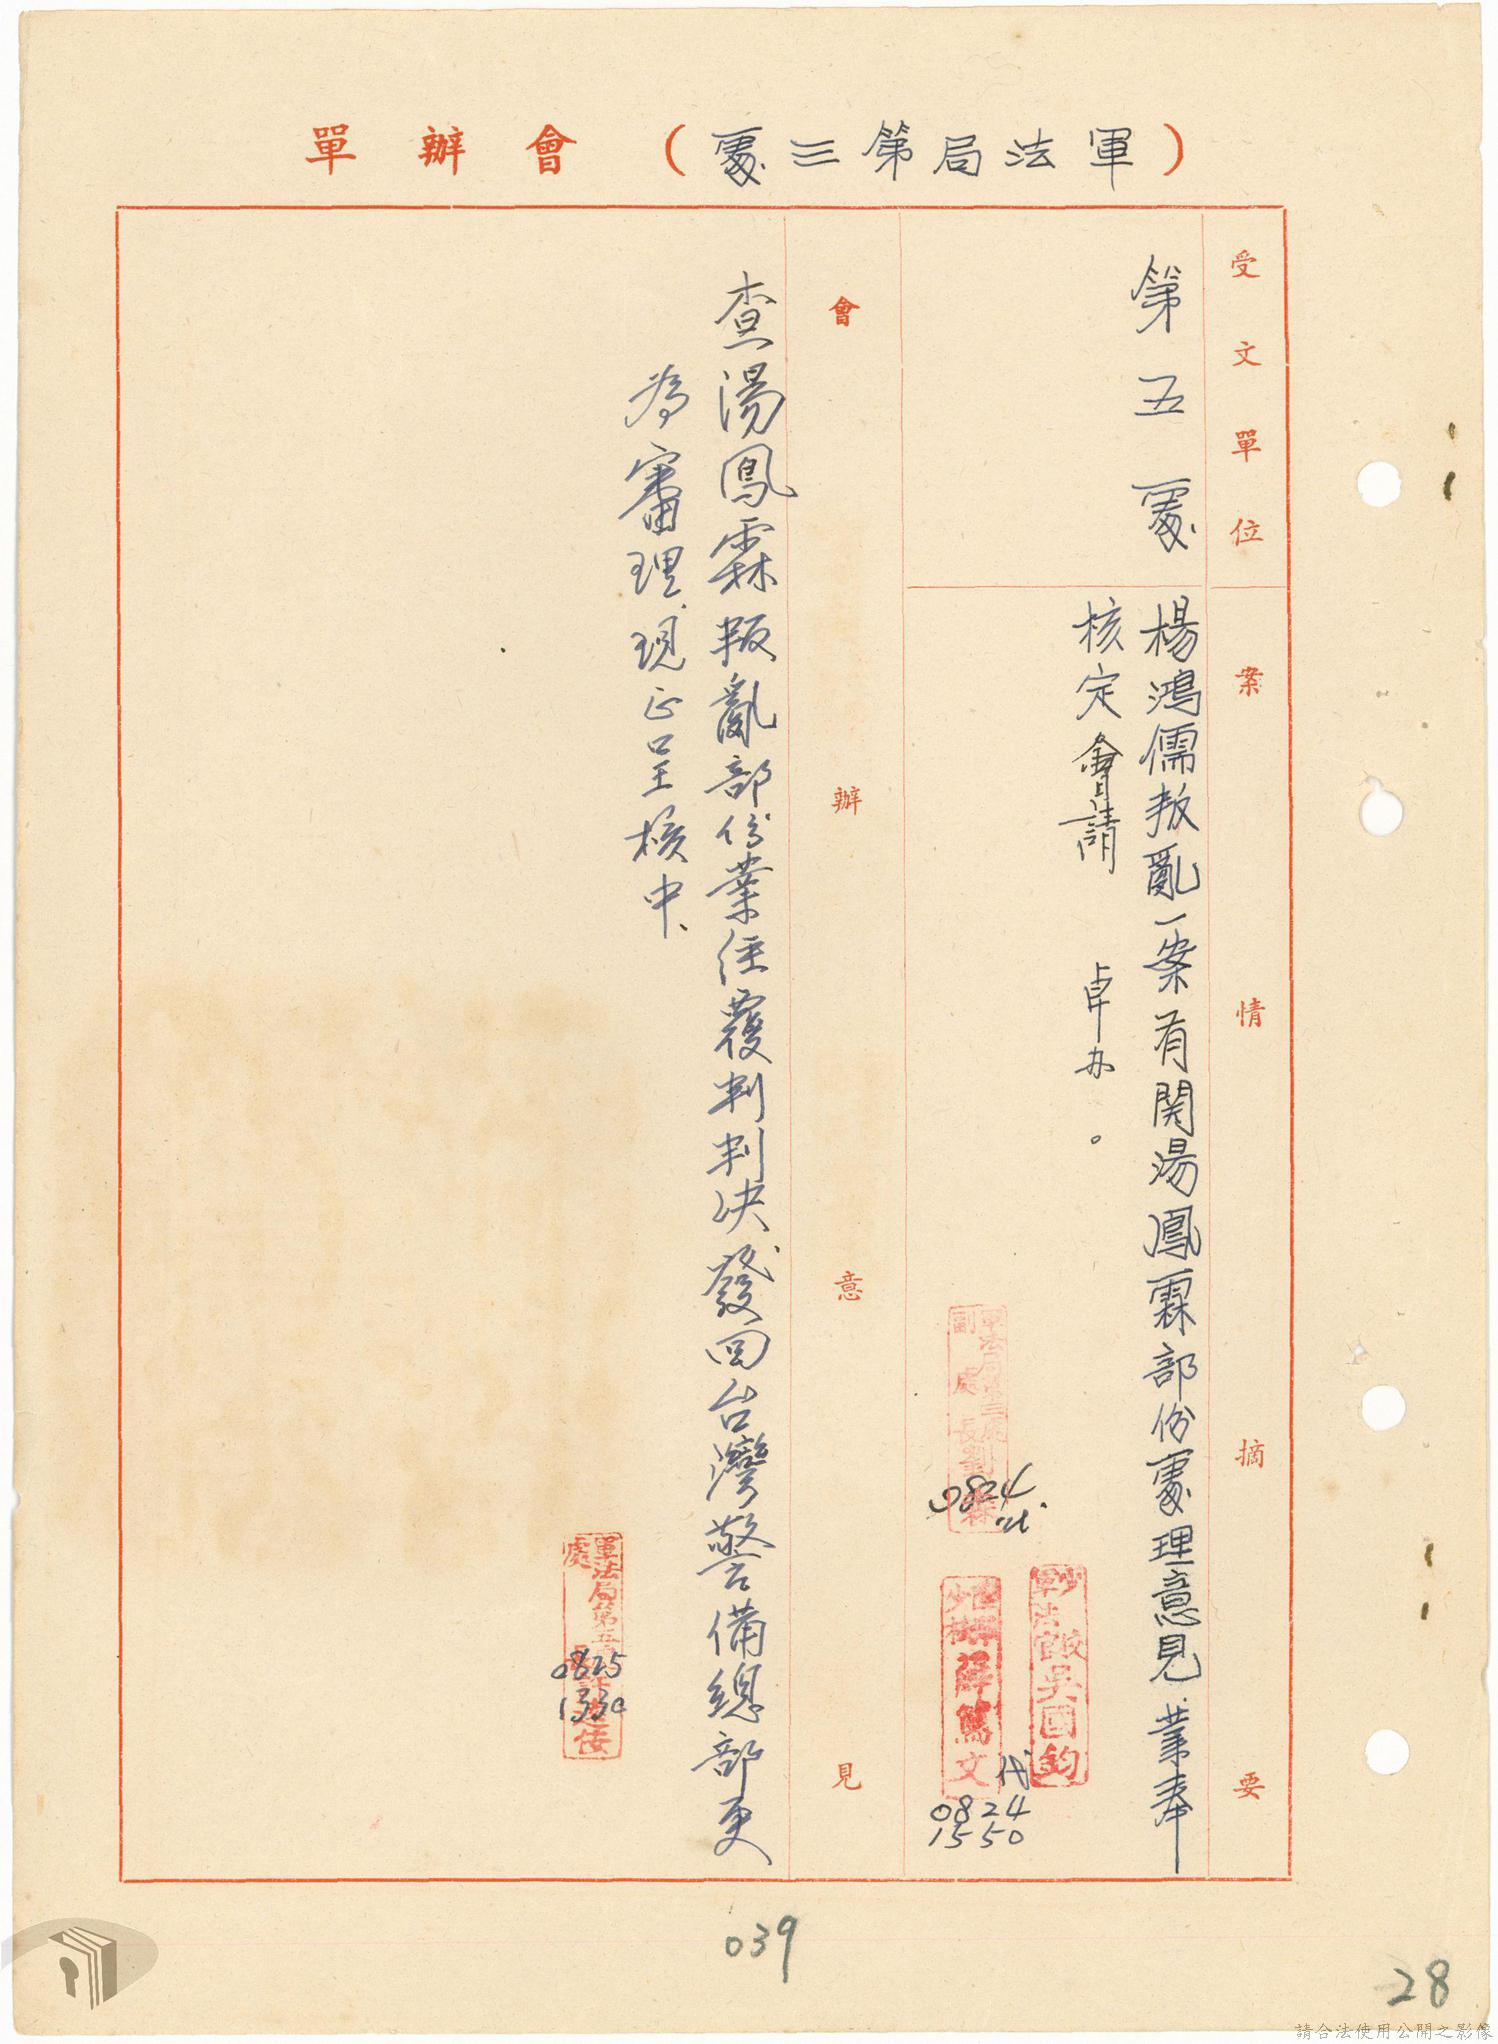 （軍法局第三處）會辦單
受文單位
第五處
案情摘要
楊鴻儒叛亂一案有関湯鳳霖部份處理意見業奉
核定會請　卓办。
軍法局第三處
副處長劉
0824
少將
薛篤文
代
0824
1550
軍法官吳國鈞
會辦意見
查湯鳳霖叛亂部份業経覆判判决發回台灣警備總部更
為審理、現正呈核中、
軍法局第五處
0825
1330
039
28
請合法使用公開之影像